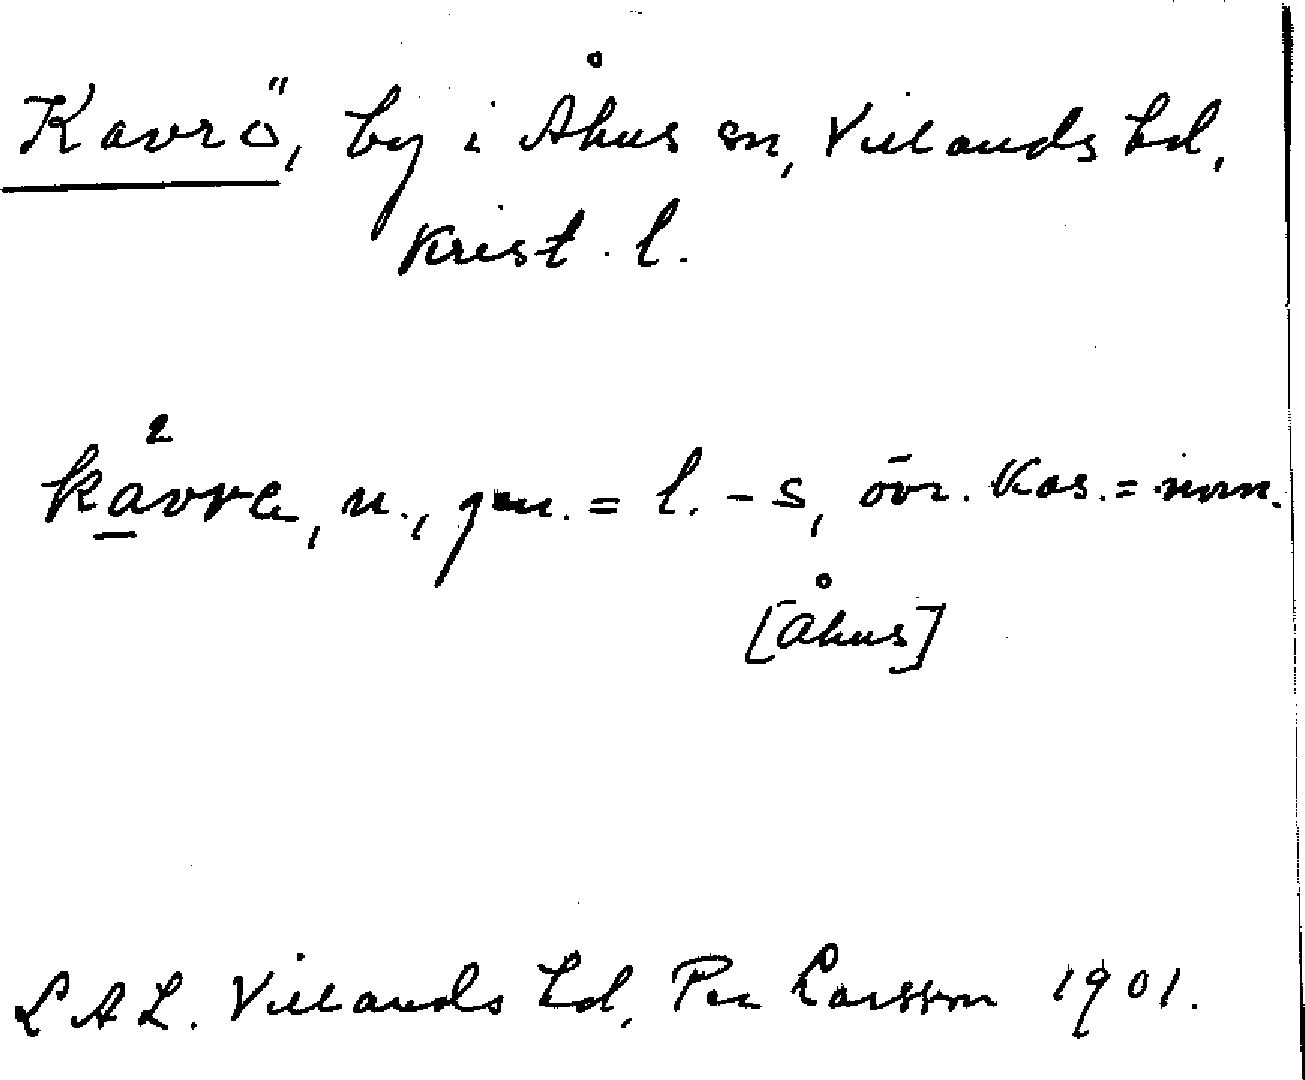 Kavrö, by i Åhus sn, Villands hd,
Krist. l.
kavre, n., gen. = l. -s, övr. kas. = nom.
[Åhus]
LAL. Villands hd, Per Larsson 1901.